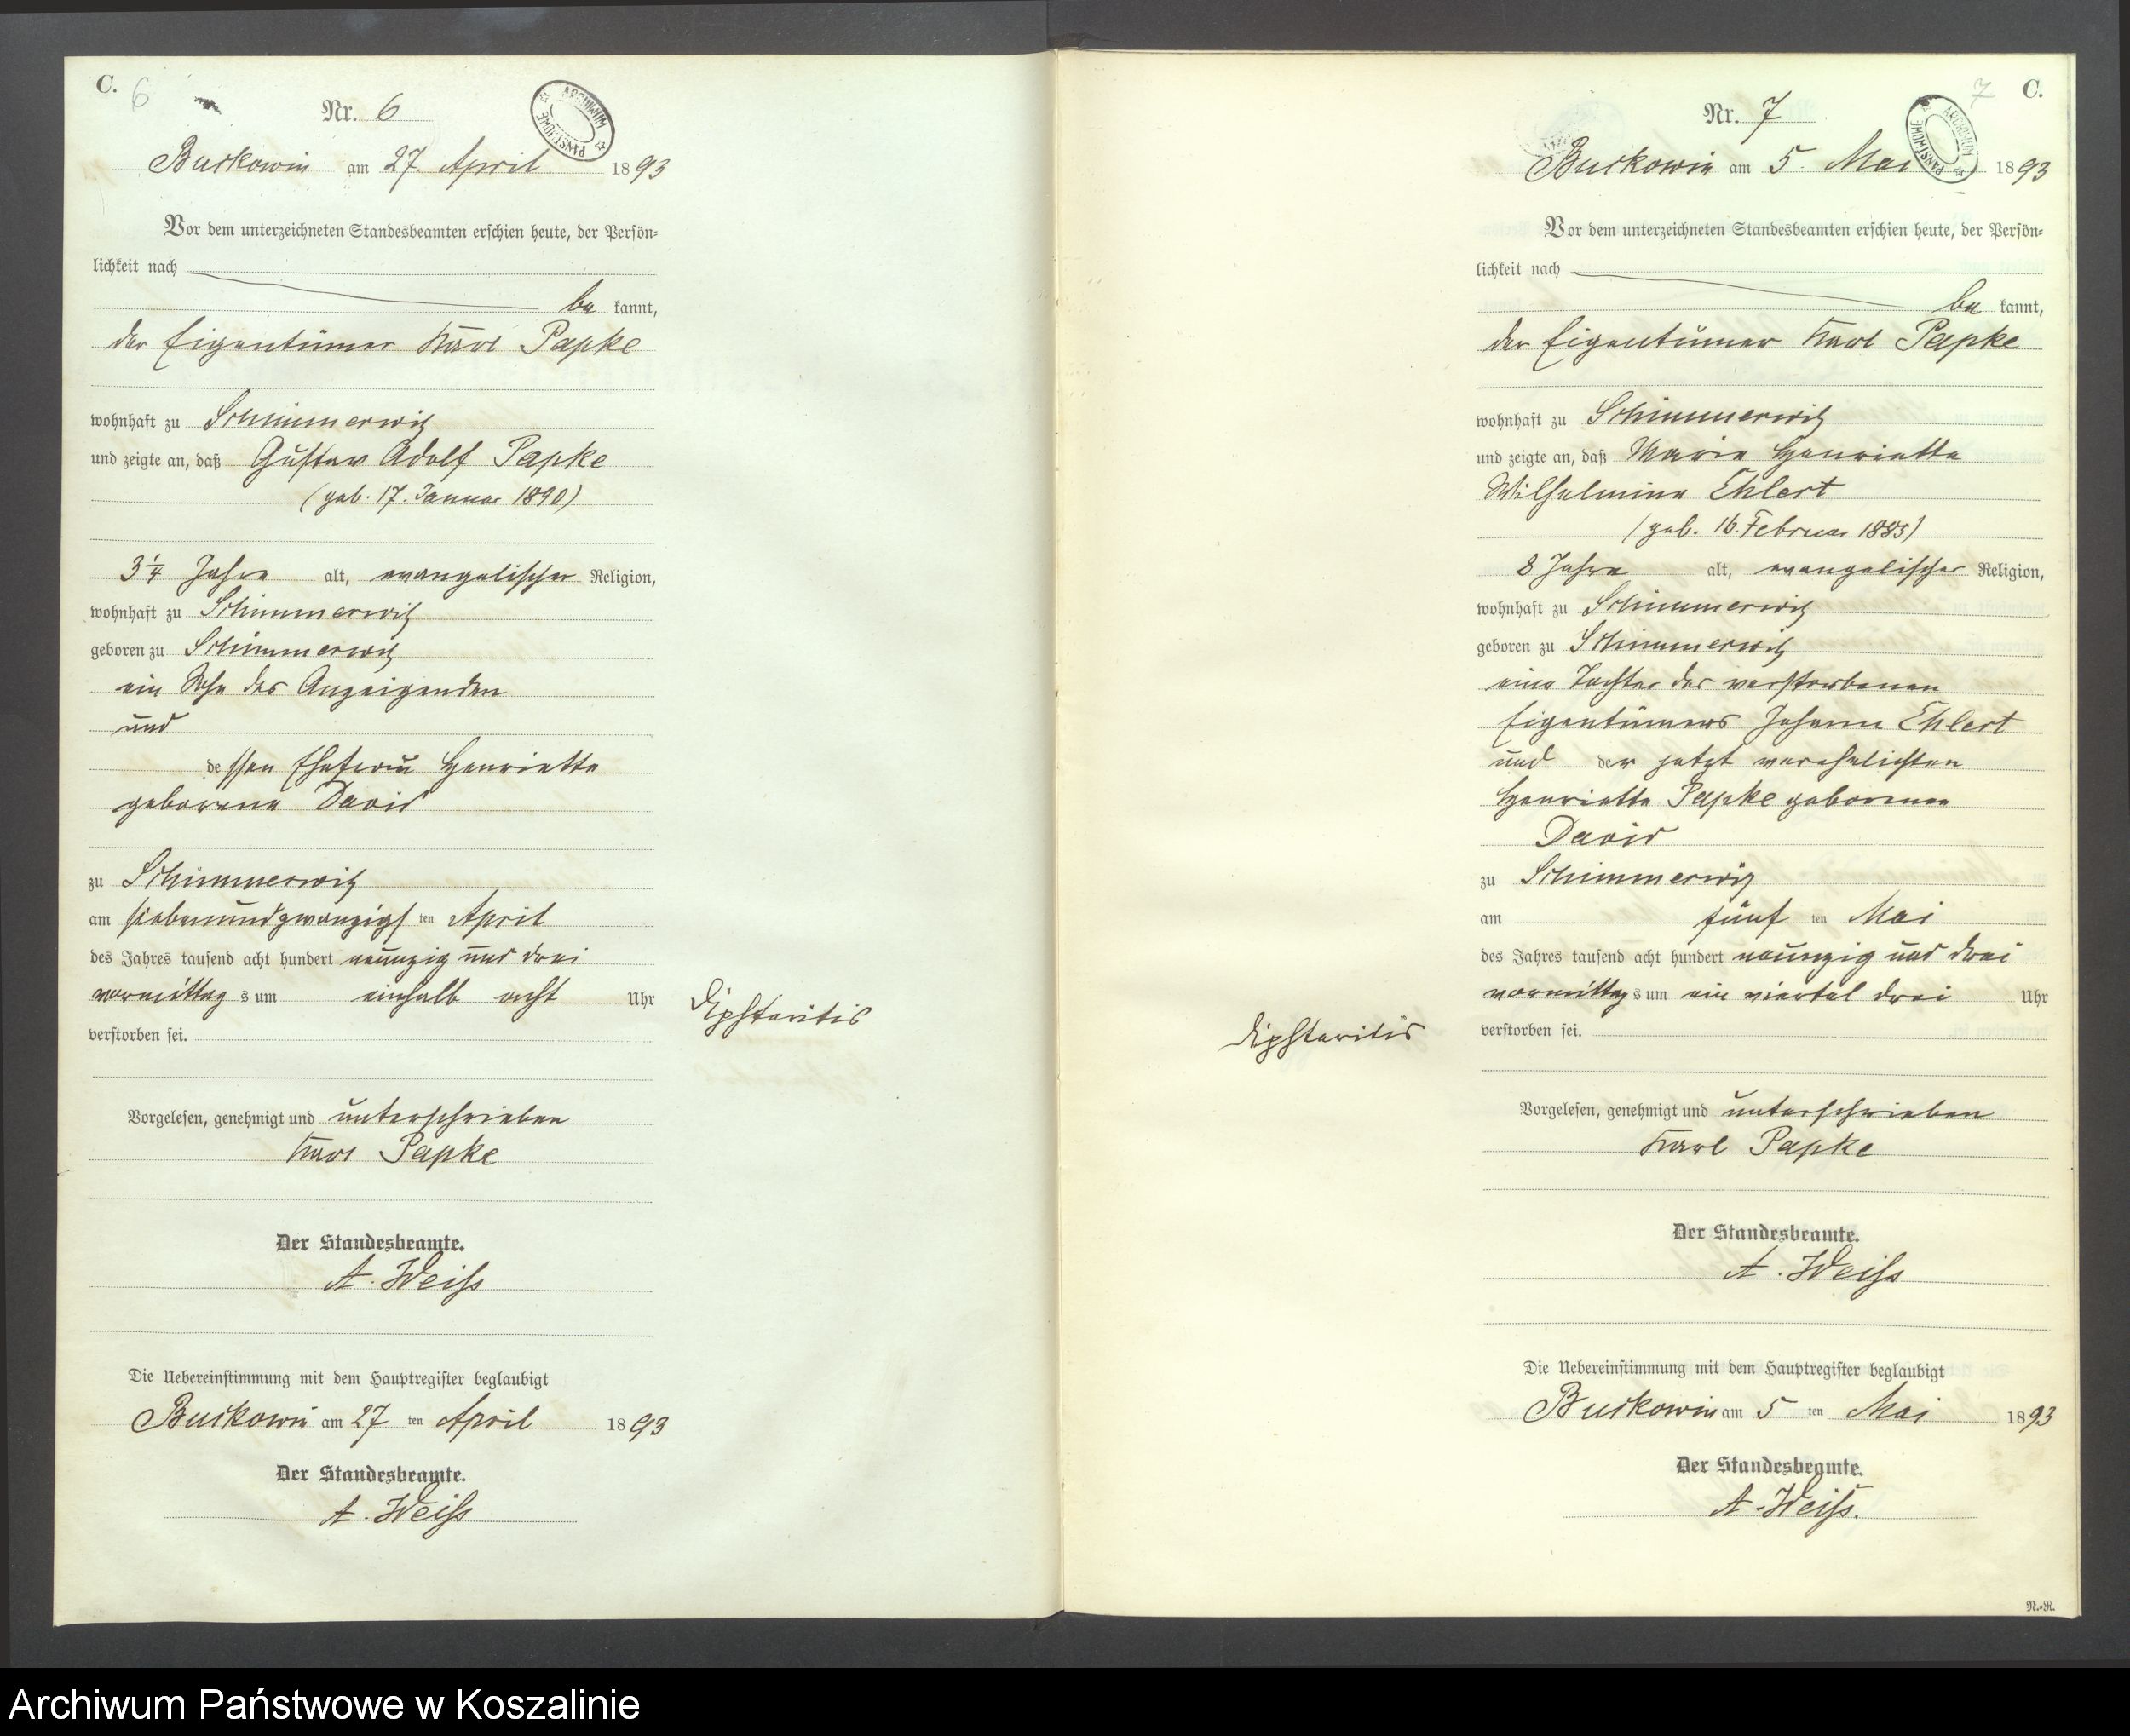 C.
6
Nr. 6
ARCHIWUM PAŃSTWOWE
Buckowin am 27. April 1893
Vor dem unterzeichneten Standesbeamten erschien heute, der Persön-
lichkeit nach
be kannt,
der Eigentümer Karl Papke
wohnhaft zu Schimmerwitz
und zeigte an, daß Gustav Adolf Papke
(geb. 17. Januar 1890)
3 1/4 Jahre alt, evangelischer Religion,
wohnhaft zu Schimmerwitz
geboren zu Schimmerwitz
ein Sohn des Anzeigenden
und
dessen Ehefrau Henriette
geborene David
zu Schimmerwitz
am siebenundzwanzigsten April
des Jahres tausend acht hundert neunzig und drei
vormittags um einhalb acht Uhr
verstorben sei.
Diphteritis
Vorgelesen, genehmigt und unterschrieben
Karl Papke
Der Standesbeamte.
A. Weiß
Die Uebereinstimmung mit dem Hauptregister beglaubigt
Buckowin am 27 ten April 1893
Der Standesbeamte.
A. Weiß
7 C.
Nr. 7
ARCHIWUM PAŃSTWOWE
Buckowin am 5. Mai 1893
Vor dem unterzeichneten Standesbeamten erschien heute, der Persön-
lichkeit nach
be kannt,
der Eigentümer Karl Papke
wohnhaft zu Schimmerwitz
und zeigte an, daß Marie Henriette
Wilhelmine Ehlert
(geb. 16. Februar 1885)
8 Jahre alt, evangelischer Religion,
wohnhaft zu Schimmerwitz
geboren zu Schimmerwitz
eine Tochter des verstorbenen
Eigentümers Johann Ehlert
und der jetzt verehelichten
Henriette Papke geborenen
David
zu Schimmerwitz
am fünf ten Mai
des Jahres tausend acht hundert neunzig und drei
vormittags um ein viertel drei Uhr
verstorben sei.
Diphteritis
Vorgelesen, genehmigt und unterschrieben
Karl Papke
Der Standesbeamte.
A. Weiß
Die Uebereinstimmung mit dem Hauptregister beglaubigt
Buckowin am 5 ten Mai 1893
Der Standesbeamte.
A. Weiß.
N.-R.
Archiwum Państwowe w Koszalinie